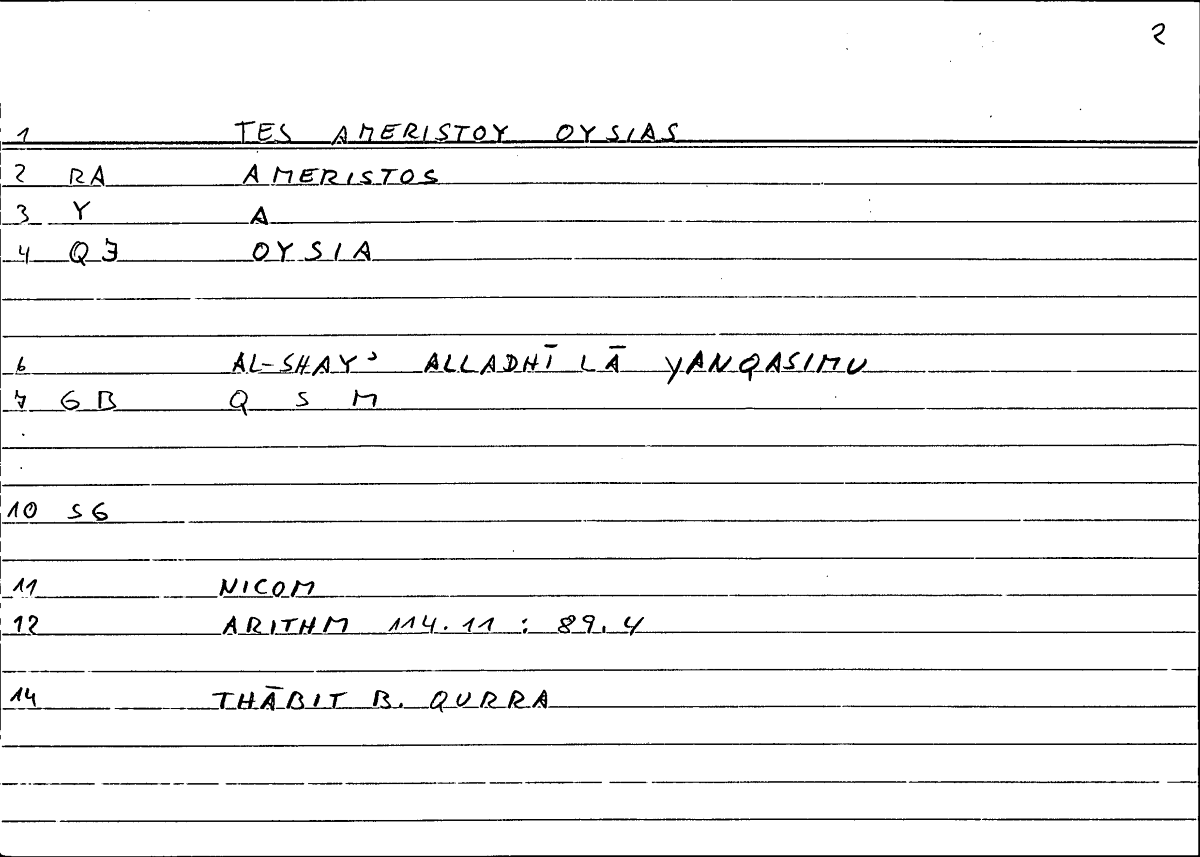 2
1 TES AMERISTOY OYSIAS
2 RA AMERISTOS
3 Y A
4 QJ OYSIA
6 AL-SHAYʾ ALLADHĪ LĀ YANQASIMU
7 GB Q S M
10 SG
11 NICOM
12 ARITHM 114.11 : 89.4
14 THĀBIT B. QURRA